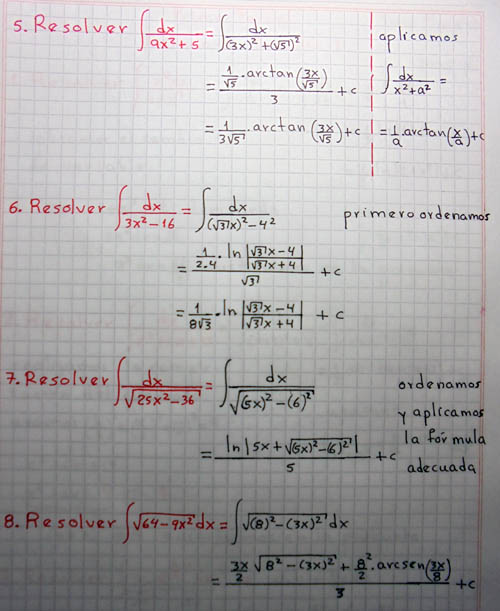 5. Resolver ∫ dx/(9x²+5) = ∫ dx/((3x)²+(√5)²) aplicamos
= (1/√5 · arctan(3x/√5))/3 + c ∫ dx/(x²+a²) =
= 1/(3√5) · arctan(3x/√5) + c = 1/a · arctan(x/a) + c
6. Resolver ∫ dx/(3x²-16) = ∫ dx/((√3x)²-4²) primero ordenamos
= (1/(2.4) · ln|(√3x-4)/(√3x+4)|)/√3 + c
= 1/(8√3) · ln|(√3x-4)/(√3x+4)| + c
7. Resolver ∫ dx/√(25x²-36) = ∫ dx/√((5x)²-(6)²) ordenamos
y aplicamos
= (ln|5x+√((5x)²-(6)²)|)/5 + c la fórmula
adecuada
8. Resolver ∫√(64-9x²) dx = ∫√((8)²-(3x)²) dx
= (3x/2 √(8²-(3x)²) + 8²/2 · arcsen(3x/8))/3 + c